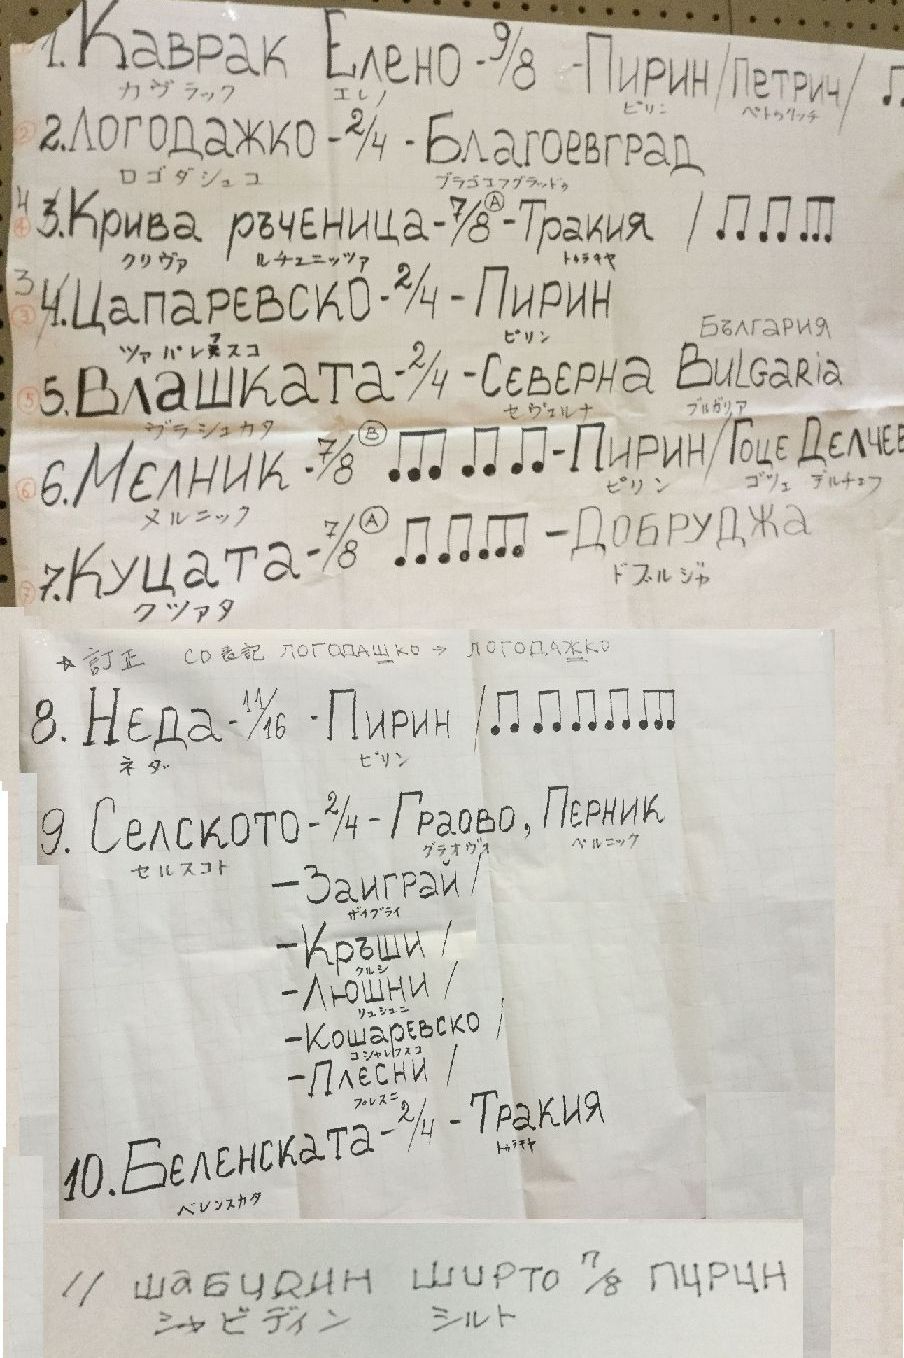 1. Каврак Елено - 9/8 - Пирин/Петрич/
カヴラック エレノ ピリン ペトゥリッチ
② 2. Логодажко - 2/4 - Благоевград
ロゴダシュコ ブラゴエフグラッドゥ
4 ④ 3. Крива ръченица - 7/8 Ⓐ - Тракия /
クリヴァ ルチェニッツァ トゥラキヤ
3 ③ 4. Цапаревско - 2/4 - Пирин
ツァパレフスコ ピリン
България
⑤ 5. Влашката - 2/4 - Северна Bulgaria
ヴラシュカタ セヴェルナ ブルガリア
⑥ 6. Мелник - 7/8 Ⓑ - Пирин/Гоце Делчев
メルニック ピリン ゴツェ デルチェフ
⑦ 7. Куцата - 7/8 Ⓐ - Добруджа
クツァタ ドブルジャ
→ 訂正 CD表記 ЛОГОДАШКО → ЛОГОДАЖКО
8. Неда - 11/16 - Пирин /
ネダ ピリン
9. Селското - 2/4 - Граово, Перник
セルスコト グラオヴォ ペルニック
- Заиграй /
ザイグライ
- Кръши /
クルシ
- Люшни /
リュシュニ
- Кошаревско /
コシャレフスコ
- Плесни /
プレスニ
10. Беленската - 2/4 - Тракия
ベレンスカタ トゥラキヤ
11 ШАБИДИН ШИРТО 7/8 ПИРИН
シャビディン シルト